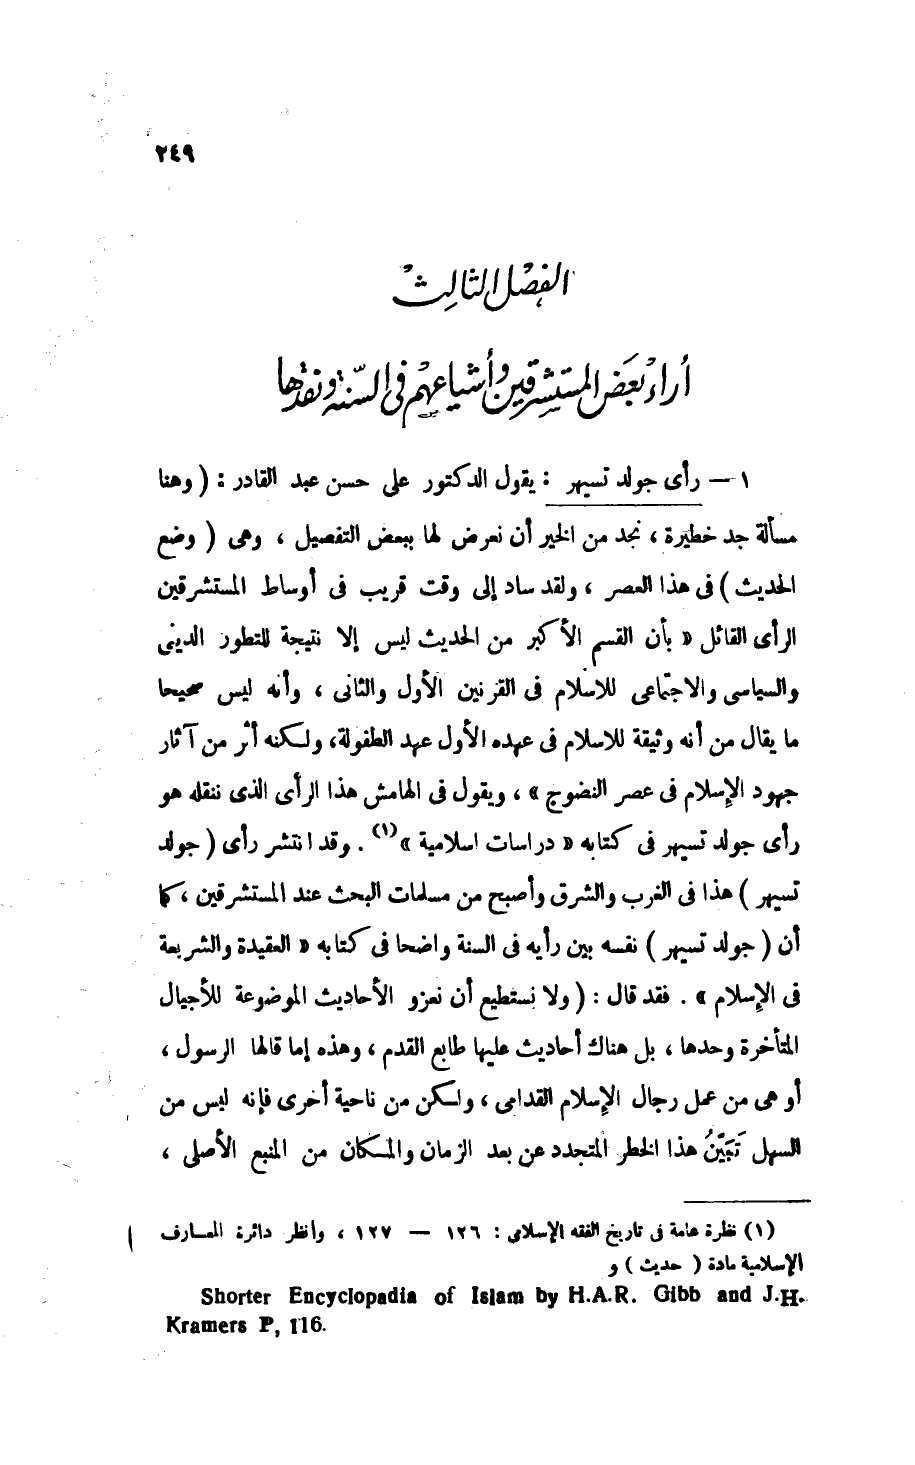 ٢٤٩
الفصل الثالث
أراء بعض المستشرقين وأشياعهم في السنة ونقدها
١ — رأى جولد تسيهر : يقول الدكتور على حسن عبد القادر : ( وهنا
مسألة جد خطيرة ، نجد من الخير أن نعرض لها ببعض التفصيل ، وهى ( وضع
الحديث ) فى هذا العصر ، ولقد ساد إلى وقت قريب فى أوساط المستشرقين
الرأى القائل « بأن القسم الأكبر من الحديث ليس إلا نتيجة للتطور الدينى
والسياسى والاجتماعى للاسلام فى القرنين الأول والثانى ، وأنه ليس صحيحا
ما يقال من أنه وثيقة للاسلام فى عهده الأول عهد الطفولة، ولكنه أثر من آثار
جهود الإسلام فى عصر النضوج » ، ويقول فى الهامش هذا الرأى الذى ننقله هو
رأى جولد تسيهر فى كتابه « دراسات اسلامية »(١) . وقد انتشر رأى ( جولد
تسيهر ) هذا فى الغرب والشرق وأصبح من مسلمات البحث عند المستشرقين ، كما
أن ( جولد تسيهر ) نفسه بين رأيه فى السنة واضحا فى كتابه « العقيدة والشريعة
فى الإسلام » . فقد قال : ( ولا نستطيع أن نعزو الأحاديث الموضوعة للأجيال
المتأخرة وحدها ، بل هناك أحاديث عليها طابع القدم ، وهذه إما قالها الرسول ،
أو هى من عمل رجال الإسلام القدامى ، ولكن من ناحية أخرى فإنه ليس من
السهل تَبَيُّنُ هذا الخطر المتجدد عن بعد الزمان والمكان من المنبع الأصلى ،
(١) نظرة عامة فى تاريخ الفقه الإسلامى : ١٢٦ — ١٢٧ ، وأنظر دائرة المعارف
الإسلامية مادة ( حديث ) و
Shorter Encyclopadia of Islam by H.A.R. Gibb and J.H.
Kramers P, 116.